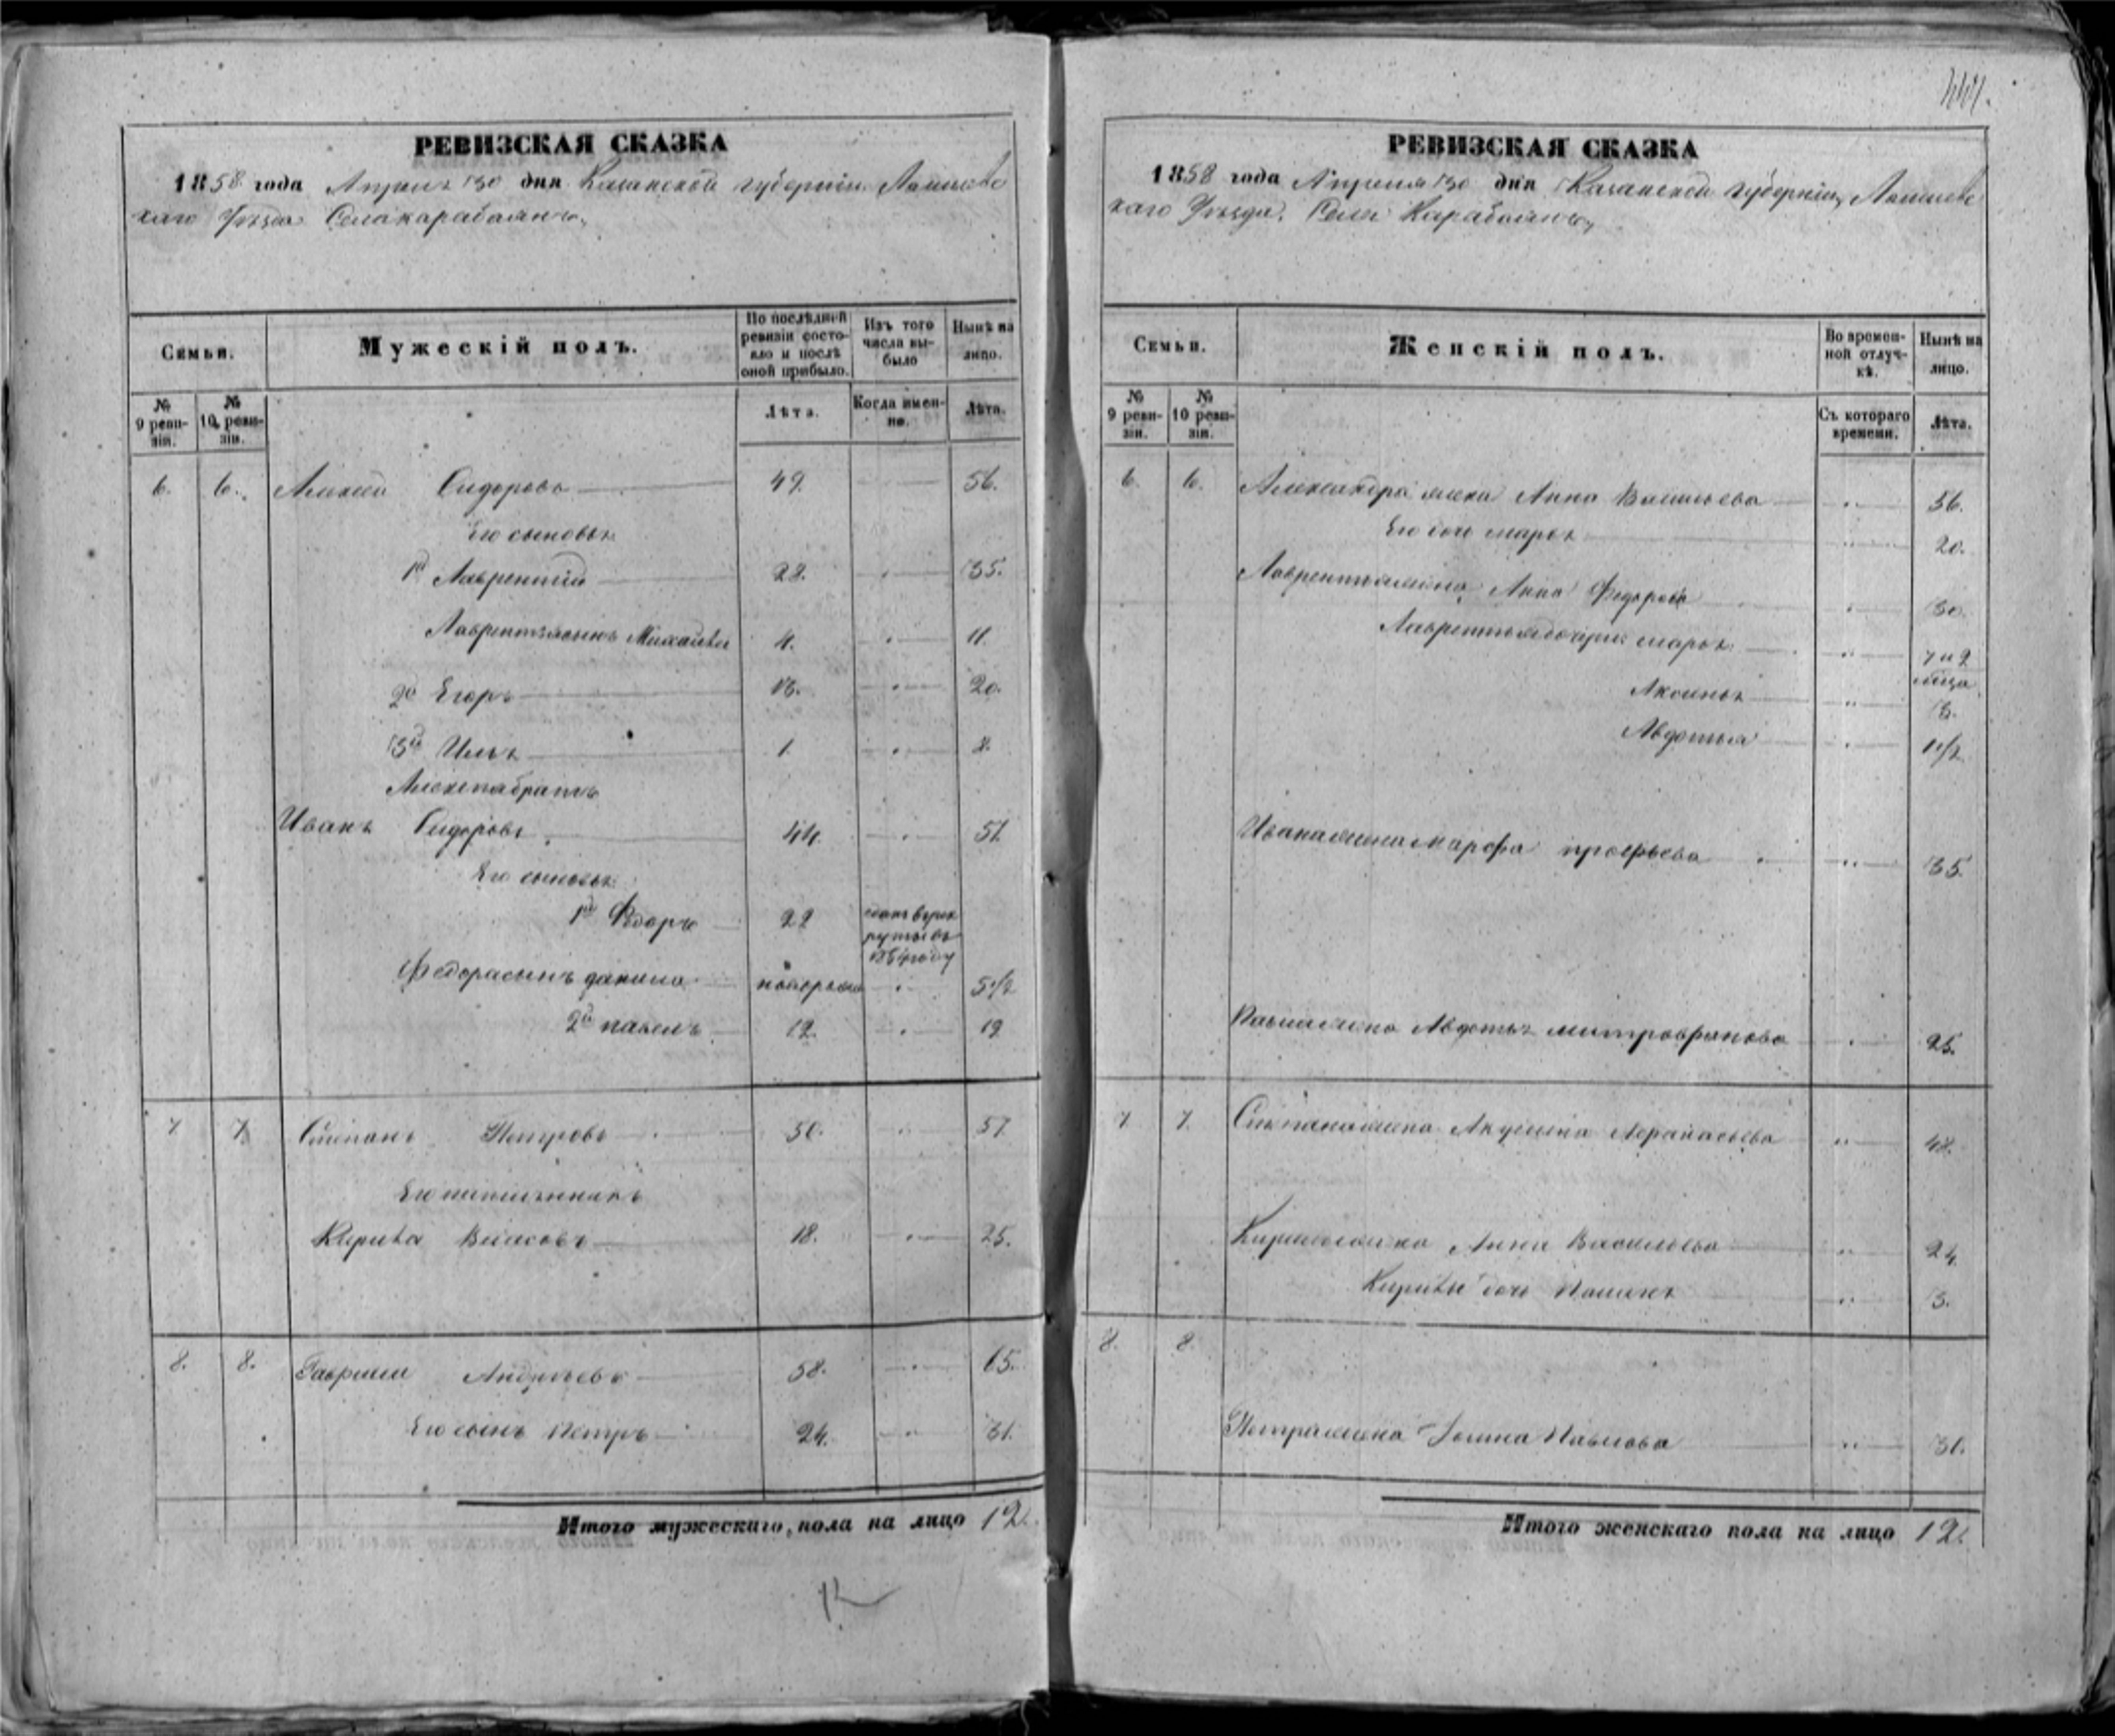 444.
РЕВИЗСКАЯ СКАЗКА
1858 года Априля 30 дня Казанской губерніи Лаишевс
каго Уѣзда Села карабаянъ,
Семьи.
Мужескій полъ.
По послѣдней ревизіи состояло и послѣ оной прибыло.
Изъ того числа выбыло
Нынѣ на лицо.
№ 9 ревизіи.
№ 10 ревизіи.
Лѣта.
Когда именно.
Лѣта.
6. 6. Алексей Сидоровъ 49. 56.
Его сыновья
1й Лаврентий 28. 35.
Лаврентья сынъ Михайла 4. 11.
2й Егоръ 13. 20.
3й Илья 1. 8.
Алексея братъ
Иванъ Сидоровъ 44. 51.
Его сыновья
1й Федоръ 22 сданъ в рек
руты въ
1854 году
Федора сынъ данила 5 1/2
2й павелъ 12. 19
7 7 Степанъ Петровъ 50. 57
Его племянникъ
Кирила Власовъ 18. 25.
8. 8. Гаврила Андреевъ 58. 65.
Его сынъ Петръ 24. 31.
Итого мужескаго пола на лицо 12.
РЕВИЗСКАЯ СКАЗКА
1858 года Априля 30 дня Казанской губерніи, Лаишевс
каго Уѣзда. Села Карабаянъ,
Семьи.
Женскій полъ.
Во временной отлучкѣ.
Нынѣ на лицо.
№ 9 ревизіи.
№ 10 ревизіи.
Съ котораго времени.
Лѣта.
6. 6. жена Анна Васильева 56.
Его дочь марья 20.
Лаврентья жена Анна Федорова 30.
Лаврентья дочери марья 7 и 9
месяца
Аксинья 3.
Авдотья 1 1/2
Ивана жена марфа 35.
Павла жена Авдотья митрофанова 25.
7 7. Степана жена Акулина Афанасьева 48.
Кирилы жена Анна Васильева 24
Кирилы дочь 3.
8. 8.
Петра жена Павлова 31.
Итого женскаго пола на лицо 12.
12